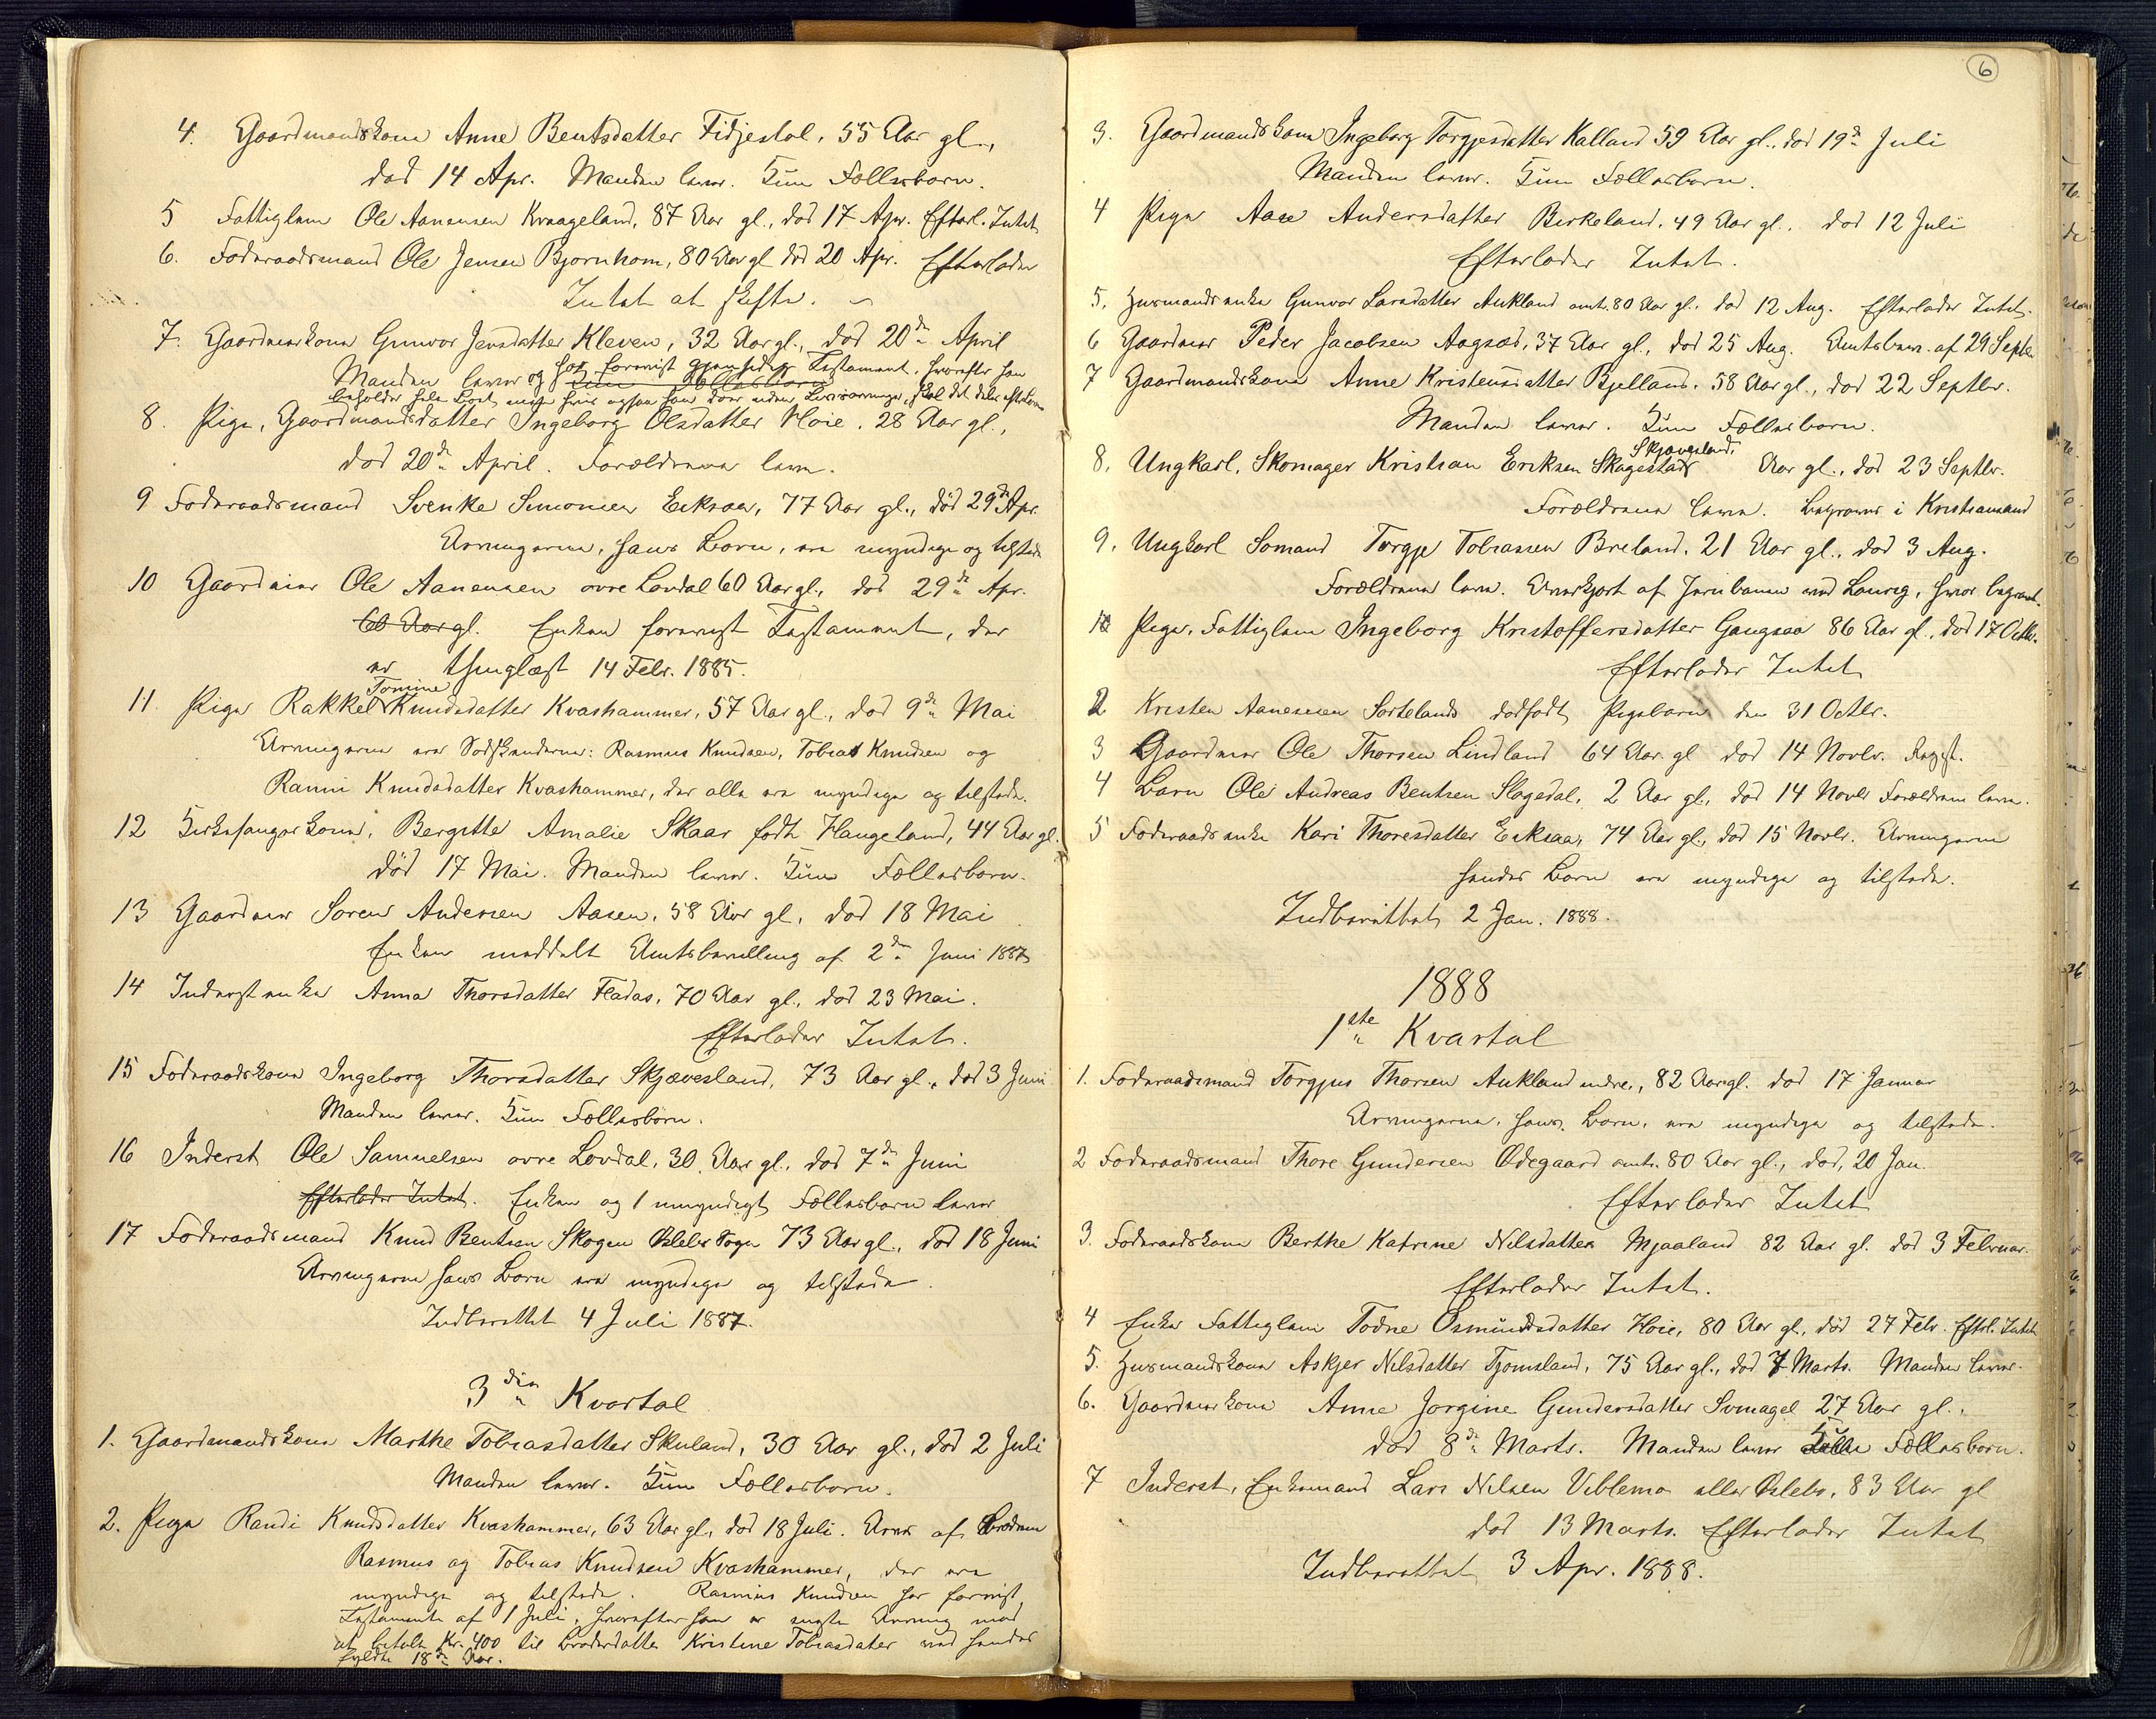 4. Gaardmandskone Anne Bentsdatter Fidjestøl, 55 Aar gl.,
død 14 Apr. Manden lever. Kun Fællesbørn.
5 Fattiglem Ole Aanensen Kraageland, 87 Aar gl., død 17 Apr. Efterl. Intet
6. Føderaadsmand Ole Jensen Bjørnhom, 80 Aar gl død 20 Apr. Efterlader
Intet at skifte.
7. Gaardeierkone Gunvor Jensdatter Kleven, 32 Aar gl., død 20de April
Manden lever og har forevist gjensidig Testament, hvorefter han
beholder hele Boet, men hvis ogsaa han døer uden Livsarvinger, skal det deles efter Loven
8. Pige, Gaardmandsdatter Ingeborg Olsdatter Høie, 28 Aar gl.,
død 20de April. Forældrene leve.
9 Føderaadsmand Svenke Simonsen Eeksaa, 77 Aar gl., død 29de Apr.
Arvingerne, hans Børn, ere myndige og tilstede
10 Gaardeier Ole Aanensen øvre Løvdal 60 Aar gl., død 29de Apr.
60 Aar gl. Enken forevist Testament, der
er thinglæst 14 Febr. 1885.
11. Pige Rakkel Tomine Knudsdatter Kvashammer, 57 Aar gl., død 9de Mai
Arvingerne ere Sødskenderne: Rasmus Knudsen, Tobias Knudsen og
Ranni Knudsdatter Kvashammer, der alle ere myndige og tilstede.
12 Kirkesangerkone, Bergitte Amalie Skaar født Haugeland, 44 Aar gl.
død 17 Mai. Manden lever. Kun Fællesbørn.
13 Gaardeier Søren Andersen Aasen, 58 Aar gl., død 18 Mai
Enken meddelt Amtsbevilling af 2den Juni 1887
14 Inderstenke Anna Thorsdatter Fladas, 70 Aar gl., død 23 Mai.
Efterlader Intet.
15 Føderaadskone Ingeborg Thorsdatter Skjævesland, 73 Aar gl., død 3 Juni
Manden lever. Kun Fællesbørn.
16 Inderst Ole Samuelsen øvre Løvdal, 30 Aar gl., død 7de Juni
Efterlader Intet. Enken og 1 umyndigt Fællesbarn lever
17 Føderaadsmand Knud Bentsen Skogen Øslebø Sogn 73 Aar gl., død 18 Juni
Arvingerne hans Børn ere myndige og tilstede.
Indberettet 4 Juli 1887.
3die Kvartal
1. Gaardmandskone Marthe Tobiasdatter Skuland, 30 Aar gl., død 2 Juli
Manden lever. Kun Fællesbørn.
2. Pige Randi Knudsdatter Kvashammer, 63 Aar gl., død 18 Juli. Arves af Brødrene
Rasmus og Tobias Knudsen Kvashammer, der ere
myndige og tilstede. Rasmus Knudsen har forevist
Testamente af 1 Juli, hvorefter han er eneste Arving mod
at betale Kr. 400 til Broderdatter Kristine Tobiasdatter ved hendes
fyldte 18de Aar.
6
3. Gaardmandskone Ingeborg Torgjesdatter Kalland 59 Aar gl., død 19de Juli
Manden lever. Kun Fællesbørn.
4 Pige Aase Andersdatter Birkeland, 49 Aar gl., død 12 Juli
Efterlader Intet.
5. Husmandsenke Gunvor Larsdatter Aukland omt. 80 Aar gl., død 12 Aug. Efterlader Intet.
6 Gaardeier Peder Jacobsen Aagsæd, 37 Aar gl., død 25 Aug. Amtsbev. af 29 Septbr
7 Gaardmandskone Anne Kristensdatter Bjelland, 58 Aar gl., død 22 Septbr.
Manden lever. Kun Fællesbørn.
8. Ungkarl, Skomager Kristian Eriksen Skagestad Skjævesland, Aar gl., død 23 Septbr.
Forældrene leve. Begraves i Kristiansand
9. Ungkarl Sømand Torgje Tobiassen Breland, 21 Aar gl., død 3 Aug.
Forældrene leve. Overkjørt af Jernbanen ved Laurvig, hvor begravet.
1 Pige, Fattiglem Ingeborg Kristoffersdatter Gangsaa 86 Aar gl., død 17 Octbr.
Efterlader Intet
2 Kristen Aanensen Sortelands dødfødt Pigebarn den 31 Octbr.
3 Gaardeier Ole Thorsen Lindland 64 Aar gl død 14 Novbr.
4 Barn Ole Andreas Bentsen Slagedal, 2 Aar gl., død 14 Novbr Forældrene leve.
5 Føderaadsenke Kari Thoresdatter Eeksaa, 74 Aar gl., død 15 Novbr. Arvingerne
hendes Børn ere myndige og tilstede.
Indberettet 2 Jan. 1888.
1888
1ste Kvartal
1. Føderaadsmand Torgjus Thorsen Aukland indre, 82 Aar gl. død 17 Januar
Arvingerne, hans Børn, ere myndige og tilstede.
2 Føderaadsmand Thore Gundersen Ødegaard omtr. 80 Aar gl., død, 20 Jan.
Efterlader Intet
3. Føderaadskone Berthe Katrine Nilsdatter Mjaaland 82 Aar gl. død 3 Februar.
Efterlader Intet.
4 Enke Fattiglem Todne Osmundsdatter Høie, 80 Aar gl., død 27 Febr. Efterl. Intet
5. Husmandskone Askjer Nilsdatter Tjomsland, 75 Aar gl., død 7 Marts. Manden lever.
6. Gaardeierkone Anne Jorgine Gundersdatter Svinagel 27 Aar gl.,
død 8de Marts. Manden lever Kun Fællesbørn.
7 Inderst, Enkemand Lars Nilsen Viblemo eller Øslebø, 83 Aar gl
død 13 Marts. Efterlader Intet
Indberettet 3 Apr. 1888.